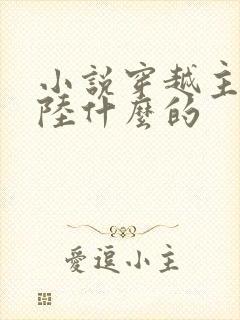 小說穿越主
陸什麼的
愛逗小主